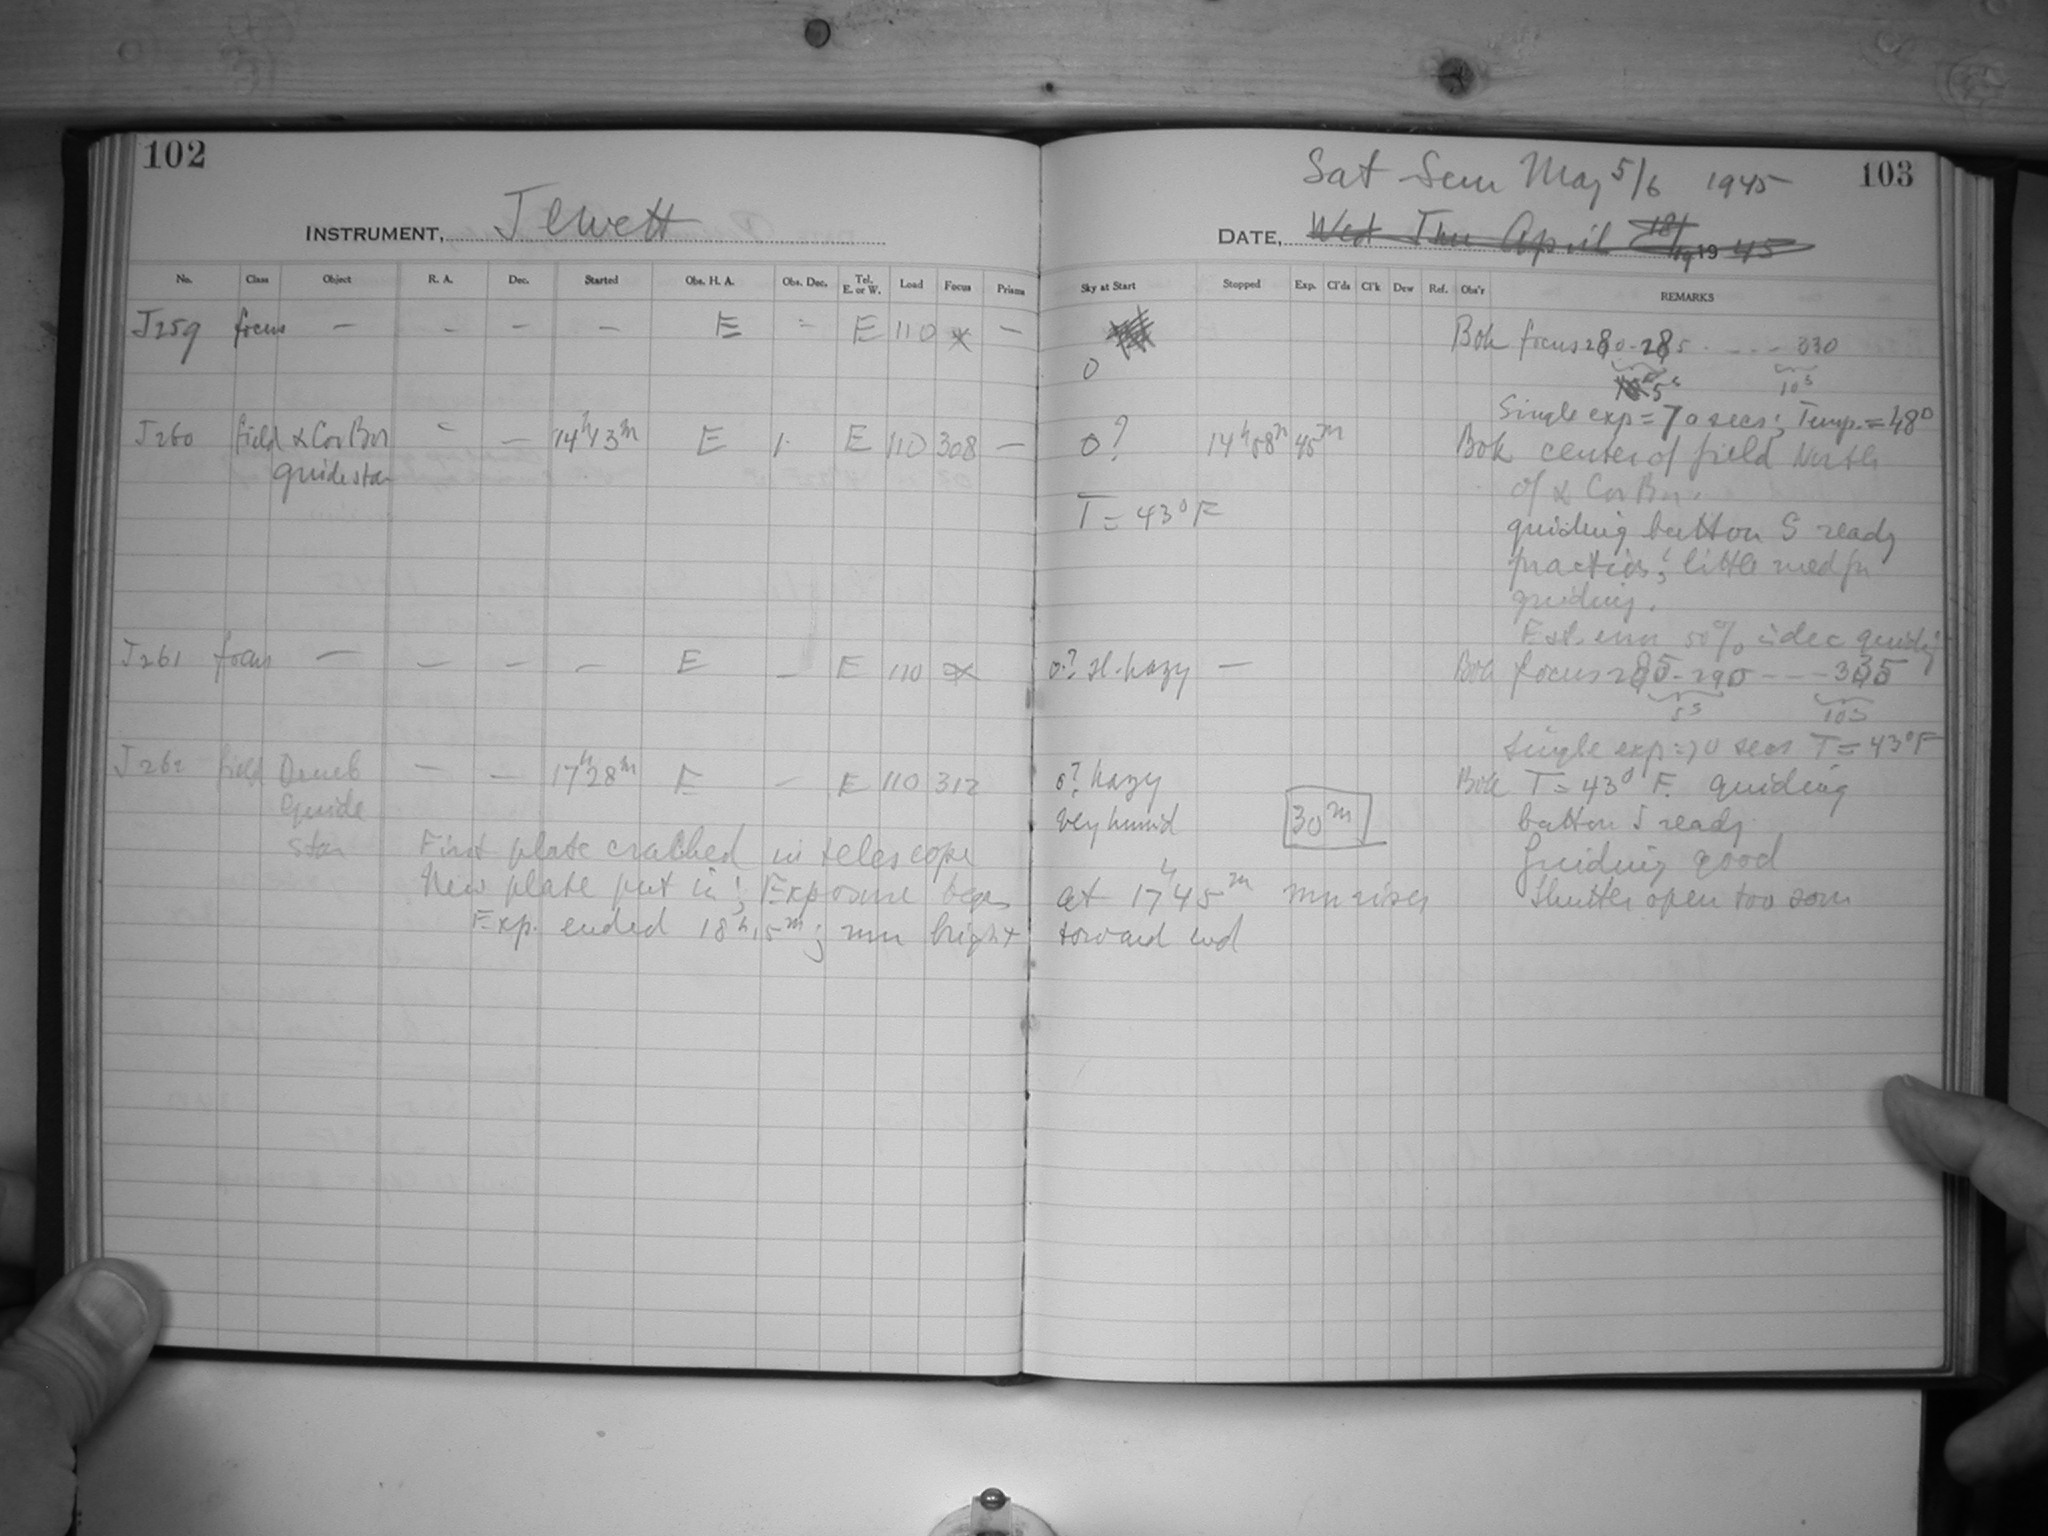 102
Sat-Sun May 5/6 1945 103
INSTRUMENT, Jewett
DATE, Wed Thu April 18/19 1945
No. Class Object R. A. Dec. Started Obs. H. A. Obs. Dec. Tel. E. or W. Load Focus Prisms Sky at Start Stopped Exp. Cl'ds Cl'k Dew Ref. Obs'r REMARKS
J259 focus — - — — E - E 110 —
0
Bok focus 280-285 . --- 330
5s 10s
Single exp = 70 secs; Temp. = 48°
J260 field α CorBor - — 14h13m E E 110 308 — 0? 14h58m 45m Bok center of field North
guide star
of α CorBor.
T = 43°F
guiding button S ready
practice; little need for
guiding.
Est. error 50% in dec guiding
J261 focus — — — — E — E 110 0? sl. hazy — Bok focus 285-290 --- 335
5s 10s
Single exp = 70 secs T = 43°F
J262 field Deneb — — 17h28m E — E 110 312 0? hazy Bok T = 43° F. guiding
guide very humid 30m button S ready
star First plate cracked in telescope guiding good
New plate put in; Exposure began at 17h45m mn rises Shutter open too soon
Exp. ended 18h15m; mn bright toward end